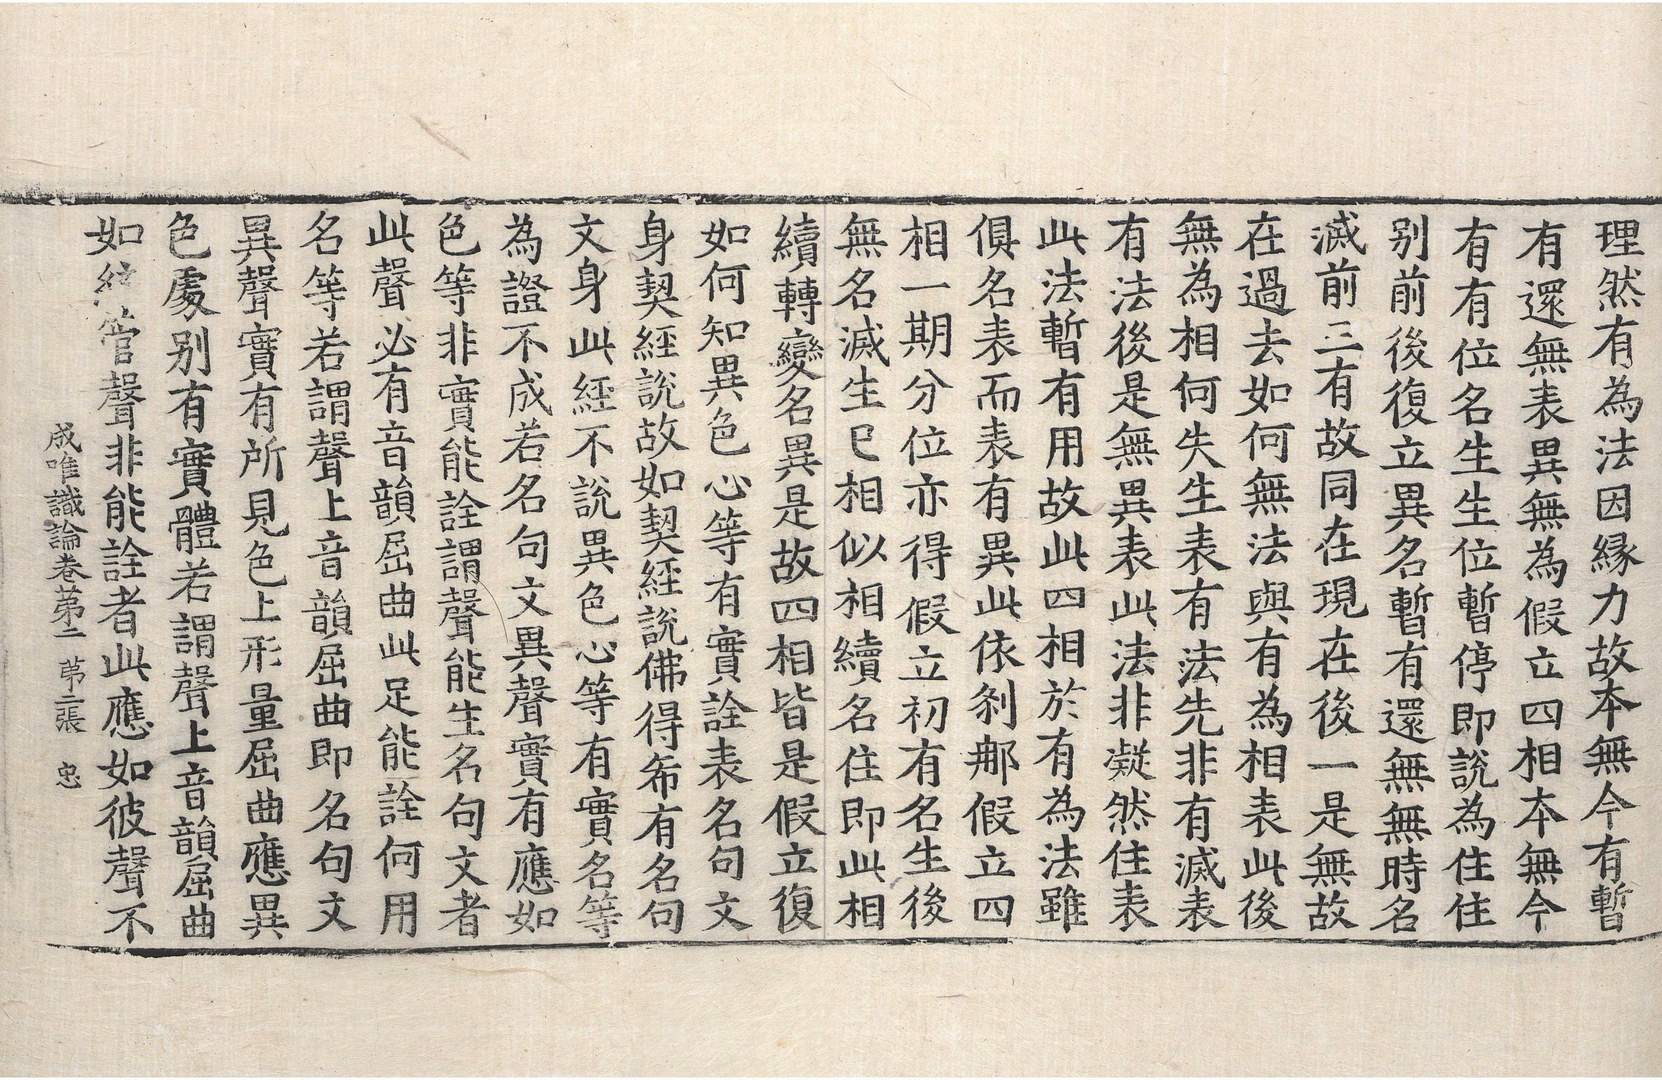 理然有為法因縁力故本無今有暫
有還無表異無為假立四相本無今
有有位名生生位暫停即說為住住
别前後復立異名暫有還無無時名
滅前三有故同在現在後一是無故
在過去如何無法與有為相表此後
無為相何失生表有法先非有滅表
有法後是無異表此法非凝然住表
此法暫有用故此四相於有為法雖
俱名表而表有異此依刹那假立四
相一期分位亦得假立初有名生後
無名滅生已相似相續名住即此相
續轉變名異是故四相皆是假立復
如何知異色心等有實詮表名句文
身契經說故如契經說佛得希有名句
文身此經不說異色心等有實名等
為證不成若名句文異聲實有應如
色等非實能詮謂聲能生名句文者
此聲必有音韻屈曲此足能詮何用
名等若謂聲上音韻屈曲即名句文
異聲實有所見色上形量屈曲應異
色處别有實體若謂聲上音韻屈曲
如絃管聲非能詮者此應如彼聲不
成唯識論卷第二 第二張 忠